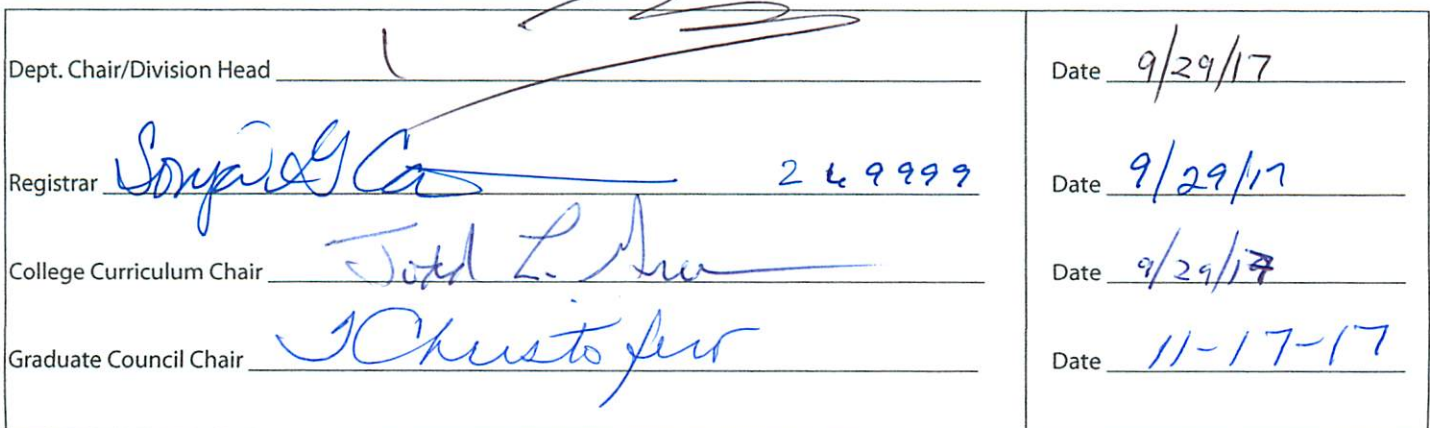 Dept. Chair/Division Head Date 9/29/17
Registrar Sonja G 249999 Date 9/29/17
College Curriculum Chair Todd L. Date 9/29/17
Graduate Council Chair Date 11-17-17